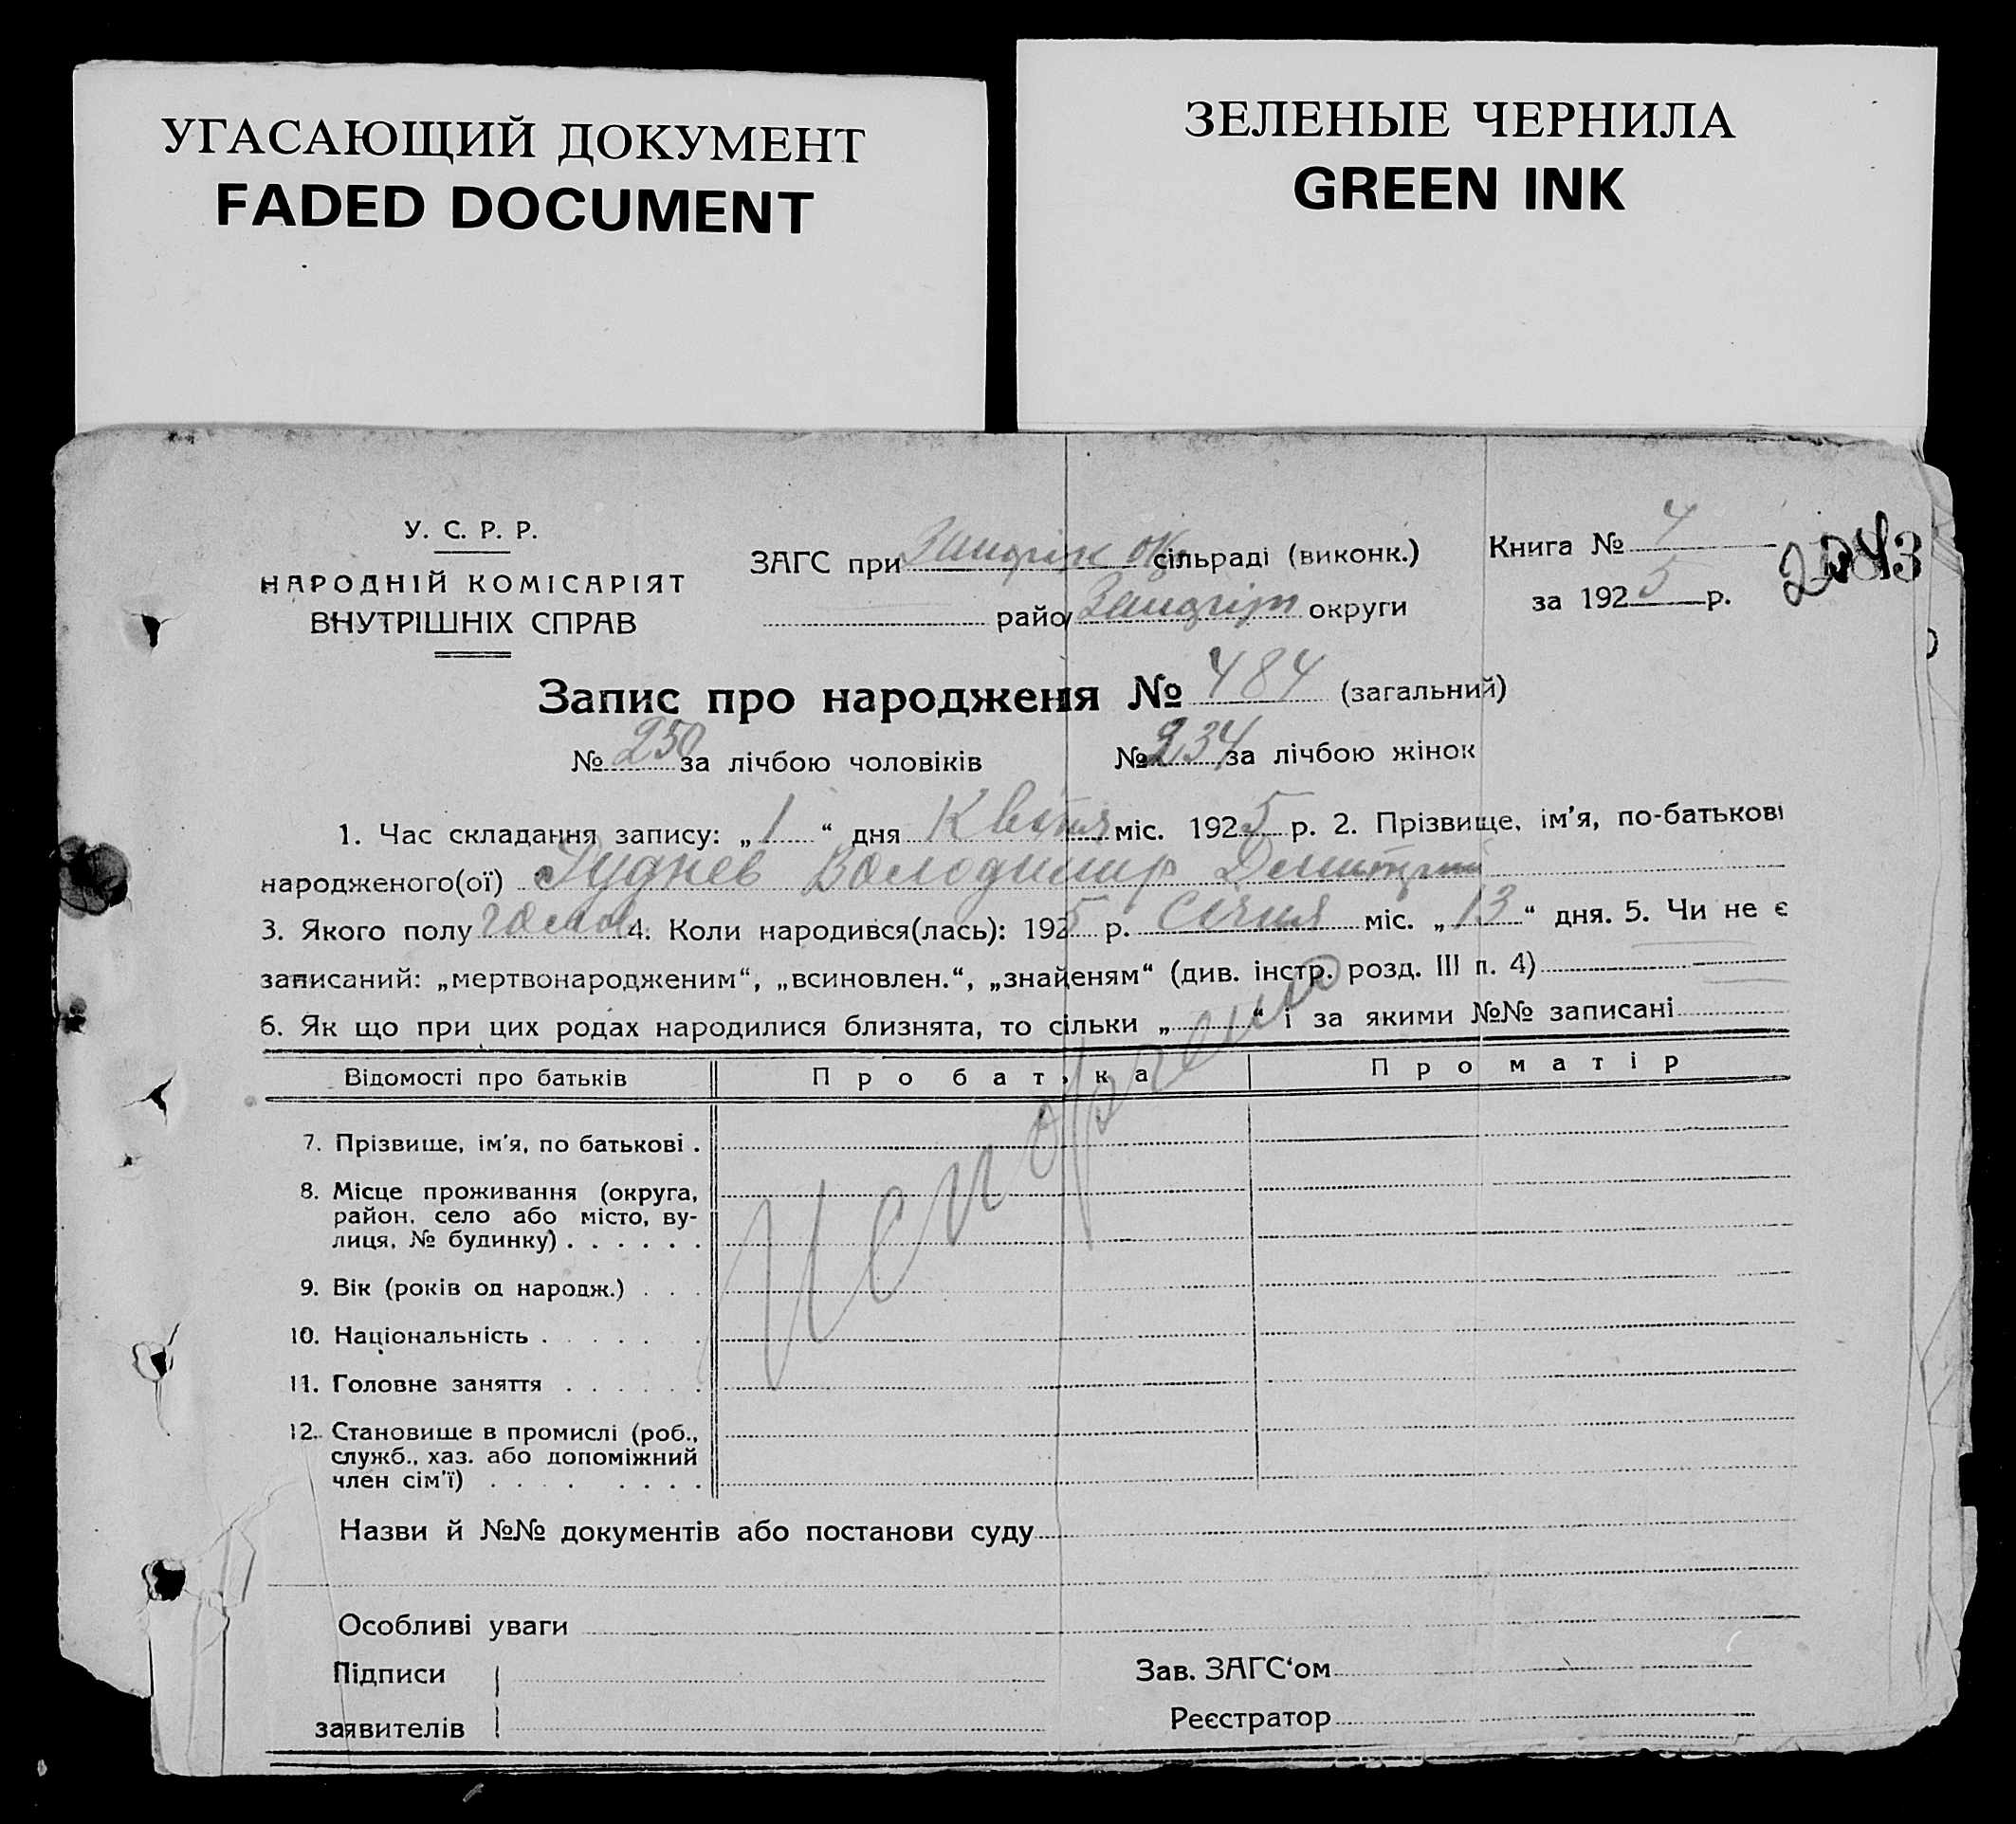 УГАСАЮЩИЙ ДОКУМЕНТ
FADED DOCUMENT
ЗЕЛЕНЫЕ ЧЕРНИЛА
GREEN INK
У. С. Р. Р.
НАРОДНІЙ КОМІСАРІЯТ
ВНУТРІШНІХ СПРАВ
ЗАГС при сільраді (виконк.)
райо округи
Книга № 4
за 1925 р.
Запис про народженя № 484 (загальний)
№ 250 за лічбою чоловіків № 234 за лічбою жінок
1. Час складання запису: „ 1 “ дня Квітня міс. 1925 р. 2. Прізвище, ім'я, по-батькові
народженого(ої) Руднев Володимир
3. Якого полу 4. Коли народився(лась): 1925 р. Січня міс. „ 13 “ дня. 5. Чи не є
записаний: „мертвонародженим“, „всиновлен.“, „знайденям“ (див. інстр. розд. III п. 4)
6. Як що при цих родах народилися близнята, то сільки „ “ і за якими №№ записані
Відомості про батьків Про батька Про матір
7. Прізвище, ім'я, по батькові .
8. Місце проживання (округа,
район, село або місто, ву-
лиця, № будинку) . . . . . .
9. Вік (років од народж.) . . .
10. Національність . . . . . .
11. Головне заняття . . . . . .
12. Становище в промислі (роб.,
служб., хаз. або допоміжний
член сім'ї) . . . . . . . .
Назви й №№ документів або постанови суду
Особливі уваги
Підписи
заявителів
Зав. ЗАГС‘ом
Реєстратор